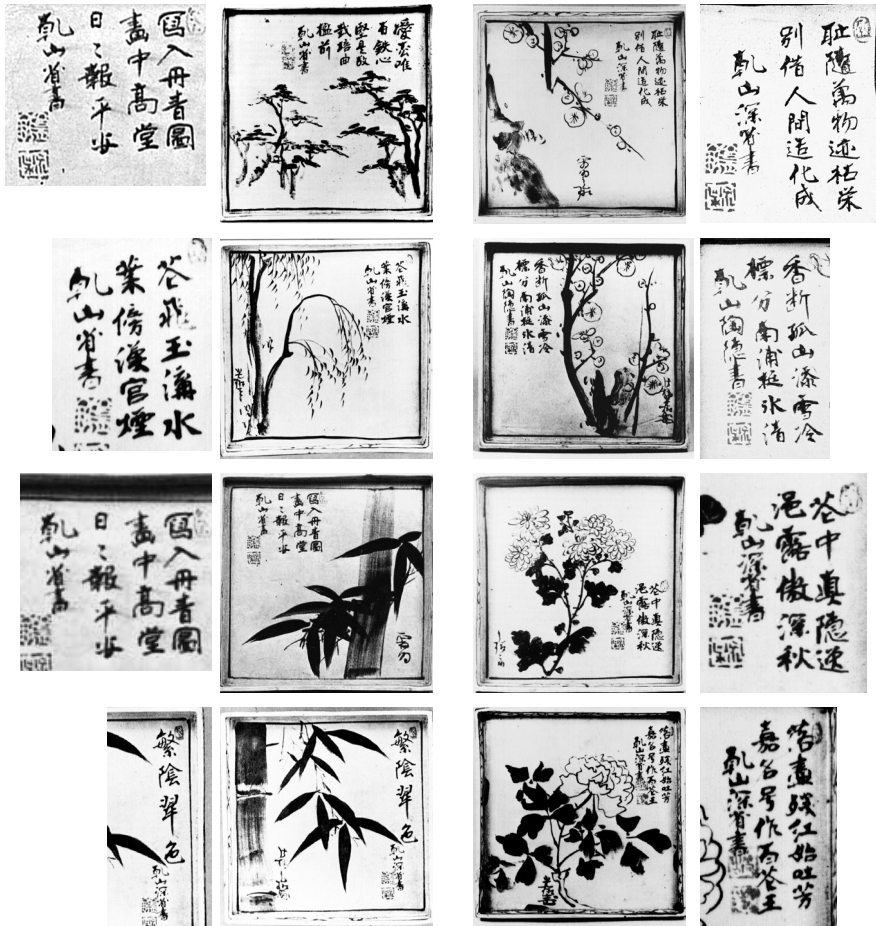 寫入丹青圖
畫中髙堂
日〻報平安
乾山省書
唯
有鉄心
堅是故
栽培曲
檻前
乾山省書
耻隨萬物迹枯榮
別借人間造化成
乾山深省書
耻隨萬物迹枯榮
別借人間造化成
乾山深省書
花飛玉澗水
葉傍漢宮煙
乾山省書
花飛玉澗水
葉傍漢宮煙
乾山省書
香断孤山添雪冷
標分南浦挺氷清
乾山陶隠書
香断孤山添雪冷
標分南浦挺氷清
乾山陶隠書
寫入丹青圖
畫中髙堂
日〻報平安
乾山省書
寫入丹青圖
畫中髙堂
日〻報平安
乾山省書
花中眞隠逸
浥露傲深秋
乾山深省書
花中眞隠逸
浥露傲深秋
乾山深省書
繁陰翠色
乾山深省書
繁陰翠色
乾山深省書
落盡残紅始吐芳
嘉名号作百花王
乾山深省書
落盡残紅始吐芳
嘉名号作百花王
乾山深省書